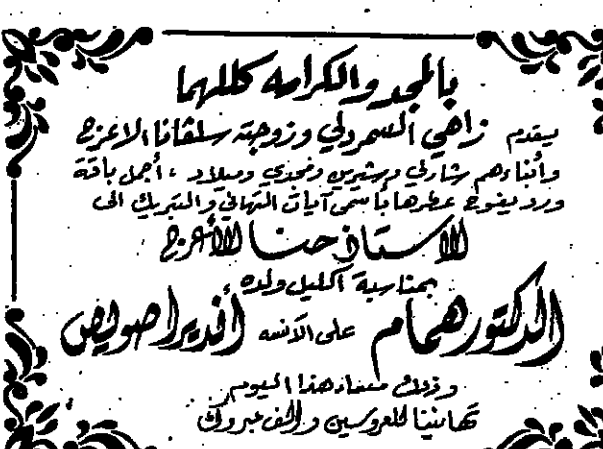 بالمجد والكرامه كللهما
يتقدم زاهي السمردلي وزوجته سلڤانا الاعرج
وأبناءهم شارلي وشيرين ومجدي وميلاد ، أجمل باقة
ورد يفوح عطرها بأسمى آيات التهاني والتبريك الى
الاستاذ حنا الأعرج
بمناسبة اكليل ولده
الدكتور همام على الآنسه أنديرا صويص
وذلك مساء هذا اليوم
تهانينا للعروسين والف مبروك